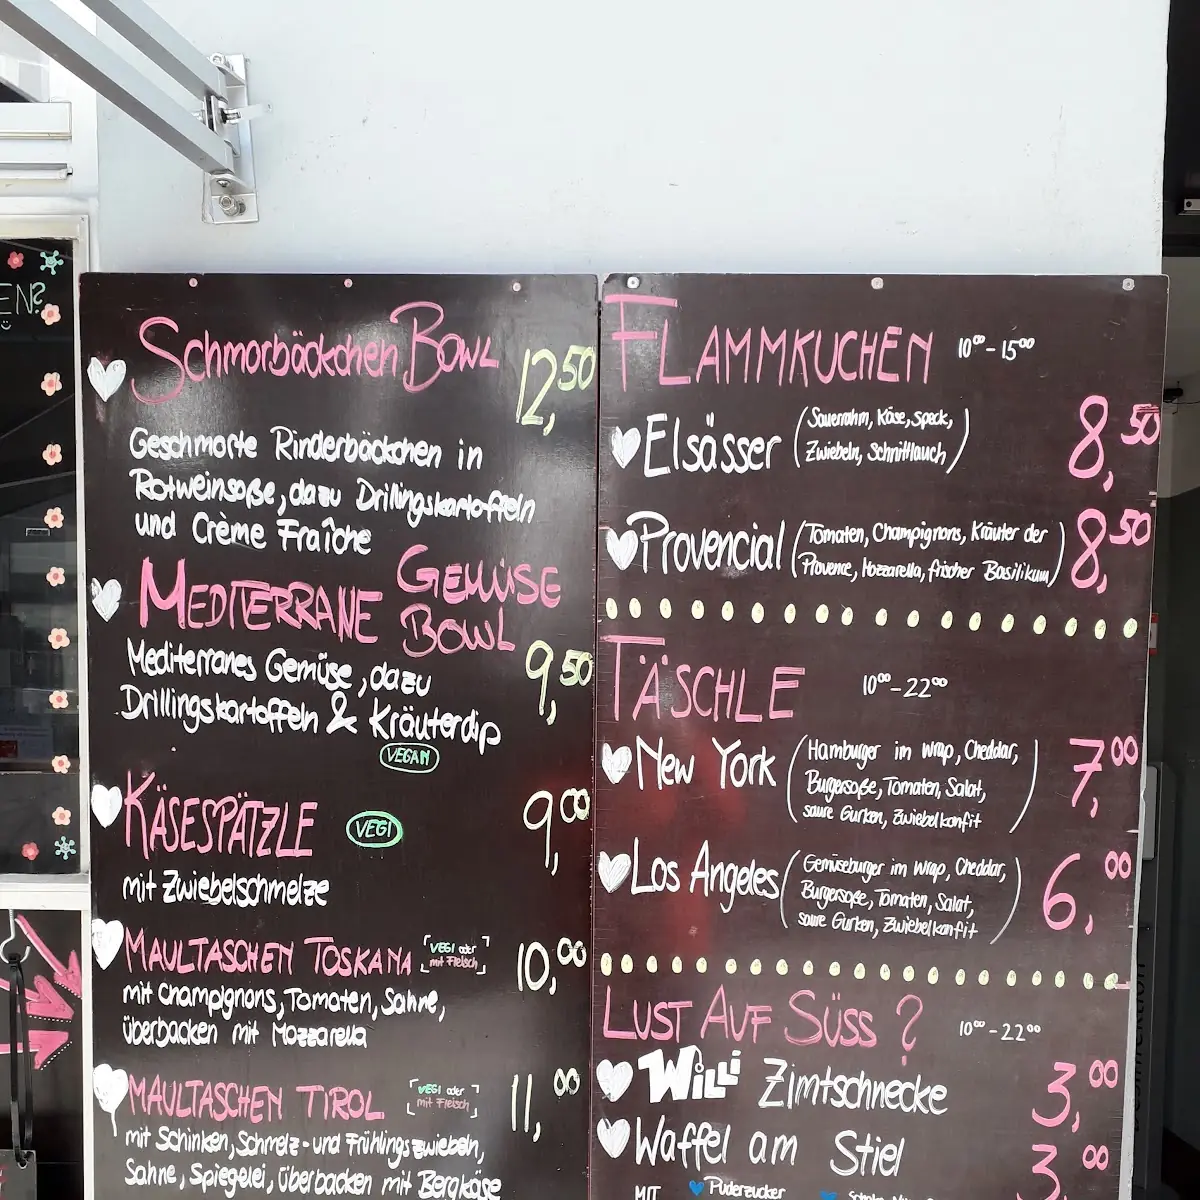 EN?
Schmorbäckchen Bowl 12,50
Geschmorte Rinderbäckchen in
Rotweinsoße, dazu Drillingskartoffeln
und Crème Fraîche
MEDITERRANE GEMÜSE
BOWL 9,50
Mediterranes Gemüse, dazu
Drillingskartoffeln & Kräuterdip
VEGAN
KÄSESPÄTZLE VEGI 9,00
mit Zwiebelschmelze
MAULTASCHEN TOSKANA VEGI oder mit Fleisch 10,00
mit Champignons, Tomaten, Sahne,
überbacken mit Mozzarella
MAULTASCHEN TIROL VEGI oder mit Fleisch 11,00
mit Schinken, Schmelz- und Frühlingszwiebeln,
Sahne, Spiegelei, überbacken mit Bergkäse
FLAMMKUCHEN 10⁰⁰-15⁰⁰
Elsässer (Sauerrahm, Käse, Speck, 8,50
Zwiebeln, Schnittlauch)
Provencial (Tomaten, Champignons, Kräuter der 8,50
Provence, Mozzarella, frischer Basilikum)
TÄSCHLE 10⁰⁰-22⁰⁰
New York (Hamburger im Wrap, Cheddar, 7,00
Burgersoße, Tomaten, Salat,
saure Gurken, Zwiebelkonfit)
Los Angeles (Gemüseburger im Wrap, Cheddar, 6,00
Burgersoße, Tomaten, Salat,
saure Gurken, Zwiebelkonfit)
LUST AUF SÜSS? 10⁰⁰-22⁰⁰
WiLLi Zimtschnecke 3,00
Waffel am Stiel 3,00
MIT Puderzucker